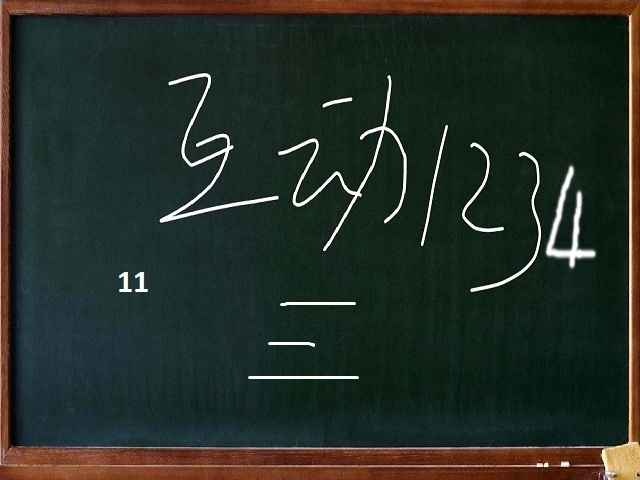 互动1234
11
三